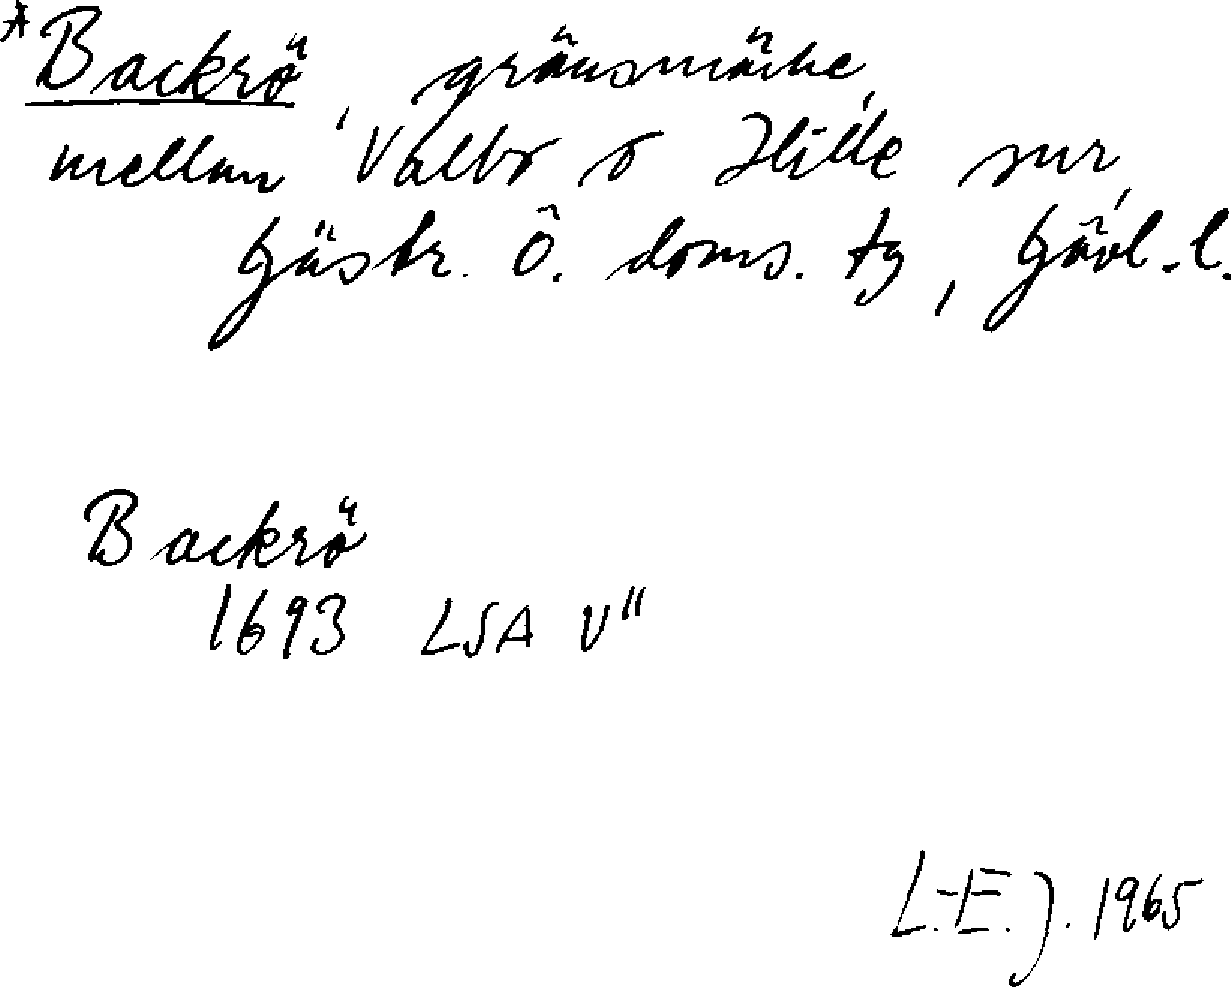 *Backrö, gränsmärke,
mellan Valbo o Hille snr,
Gästr. Ö. doms. tg, Gävl. l.
Backrö
1693 LSA V"
L.-E. J. 1965